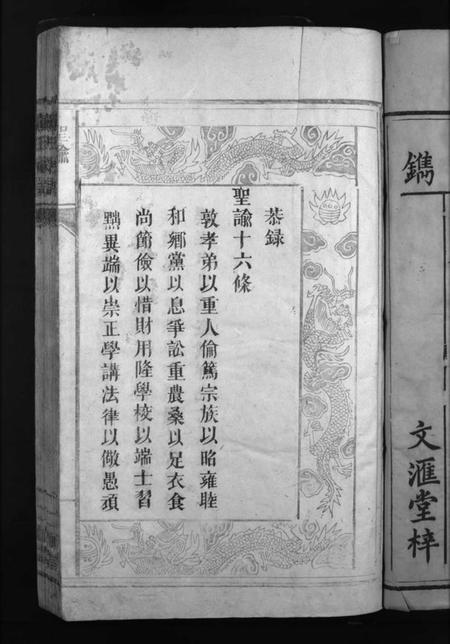 鐫
文滙堂梓
恭録
聖諭十六條
敦孝弟以重人倫篤宗族以昭雍睦
和鄉黨以息爭訟重農桑以足衣食
尚節儉以惜財用隆學校以端士習
黜異端以崇正學講法律以儆愚頑
聖諭